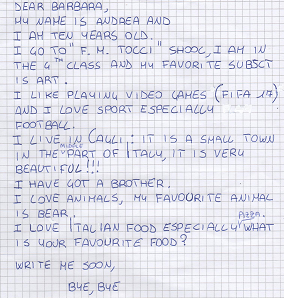 DEAR BARBARA,
MY NAME IS ANDREA AND
I AM TEN YEARS OLD.
I GO TO "F. M. TOCCI" SHOOL, I AM IN
THE 4TH CLASS AND MY FAVORITE SUBSCT
IS ART.
I LIKE PLAYING VIDEO GAMES (FIFA 17)
AND I LOVE SPORT ESPECIALLY
FOOTBALL.
I LIVE IN CAGLI: IT IS A SMALL TOWN
IN THE MIDDLE PART OF ITALY, IT IS VERY
BEAUTIFUL!!!
I HAVE GOT A BROTHER.
I LOVE ANIMALS, MY FAVOURITE ANIMAL
IS BEAR.
I LOVE ITALIAN FOOD ESPECIALLY PIZZA. WHAT
IS YOUR FAVOURITE FOOD?
WRITE ME SOON,
BYE, BYE